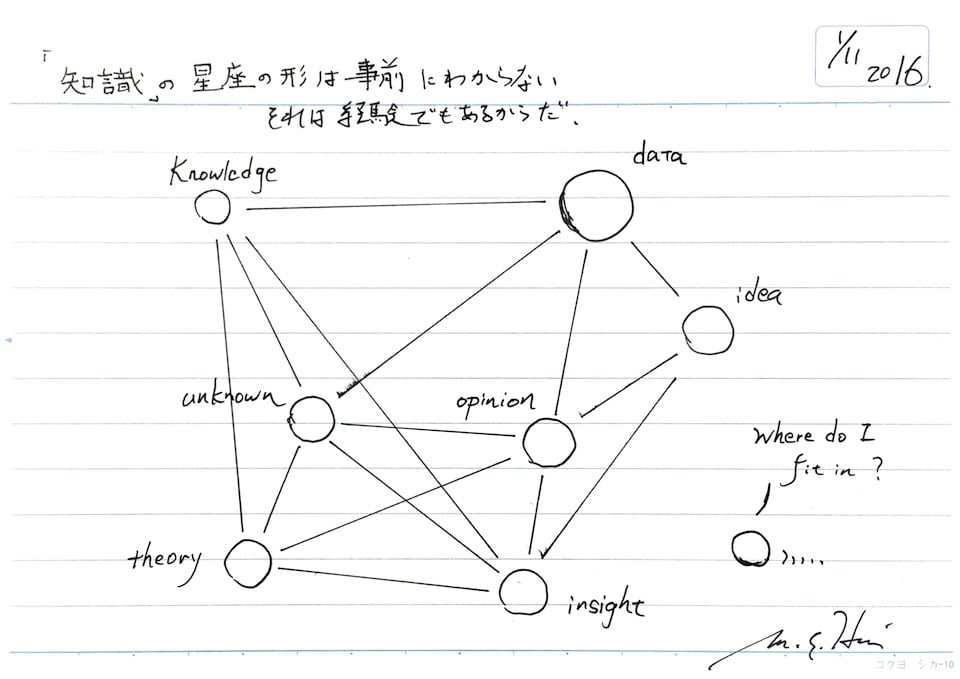 「知識」の星座の形は事前にわからない
それは経験でもあるからだ.
1/11 2016.
Knowledge
data
idea
unknown
opinion
where do I
fit in ?
theory
insight
コクヨ シカ-10